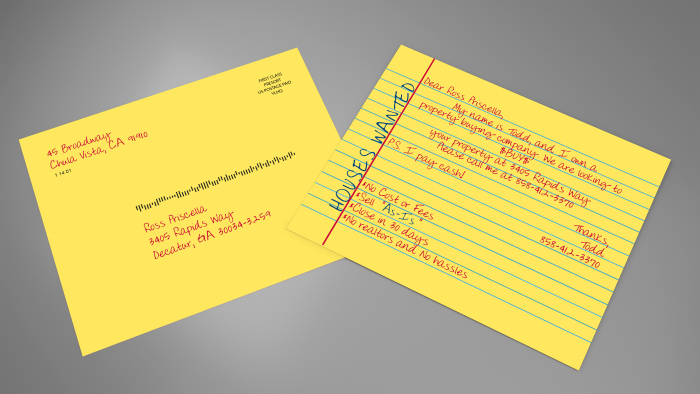 45 Broadway
Chula Vista, CA 91910
FIRST CLASS
PRESORT
US POSTAGE PAID
Ross Priscella
3405 Rapids Way
Decatur, GA 30034-3259
HOUSES WANTED
Dear Ross Priscella,
My name is Todd, and I own a
property buying company. We are looking to
$BUY$
your property at 3405 Rapids Way
Please call me at 858-412-3370
P.S. I pay cash!
Thanks,
Todd
858-412-3370
*No Cost or Fees
*Sell "As-Is"
*Close in 30 days
*No realtors and No hassles